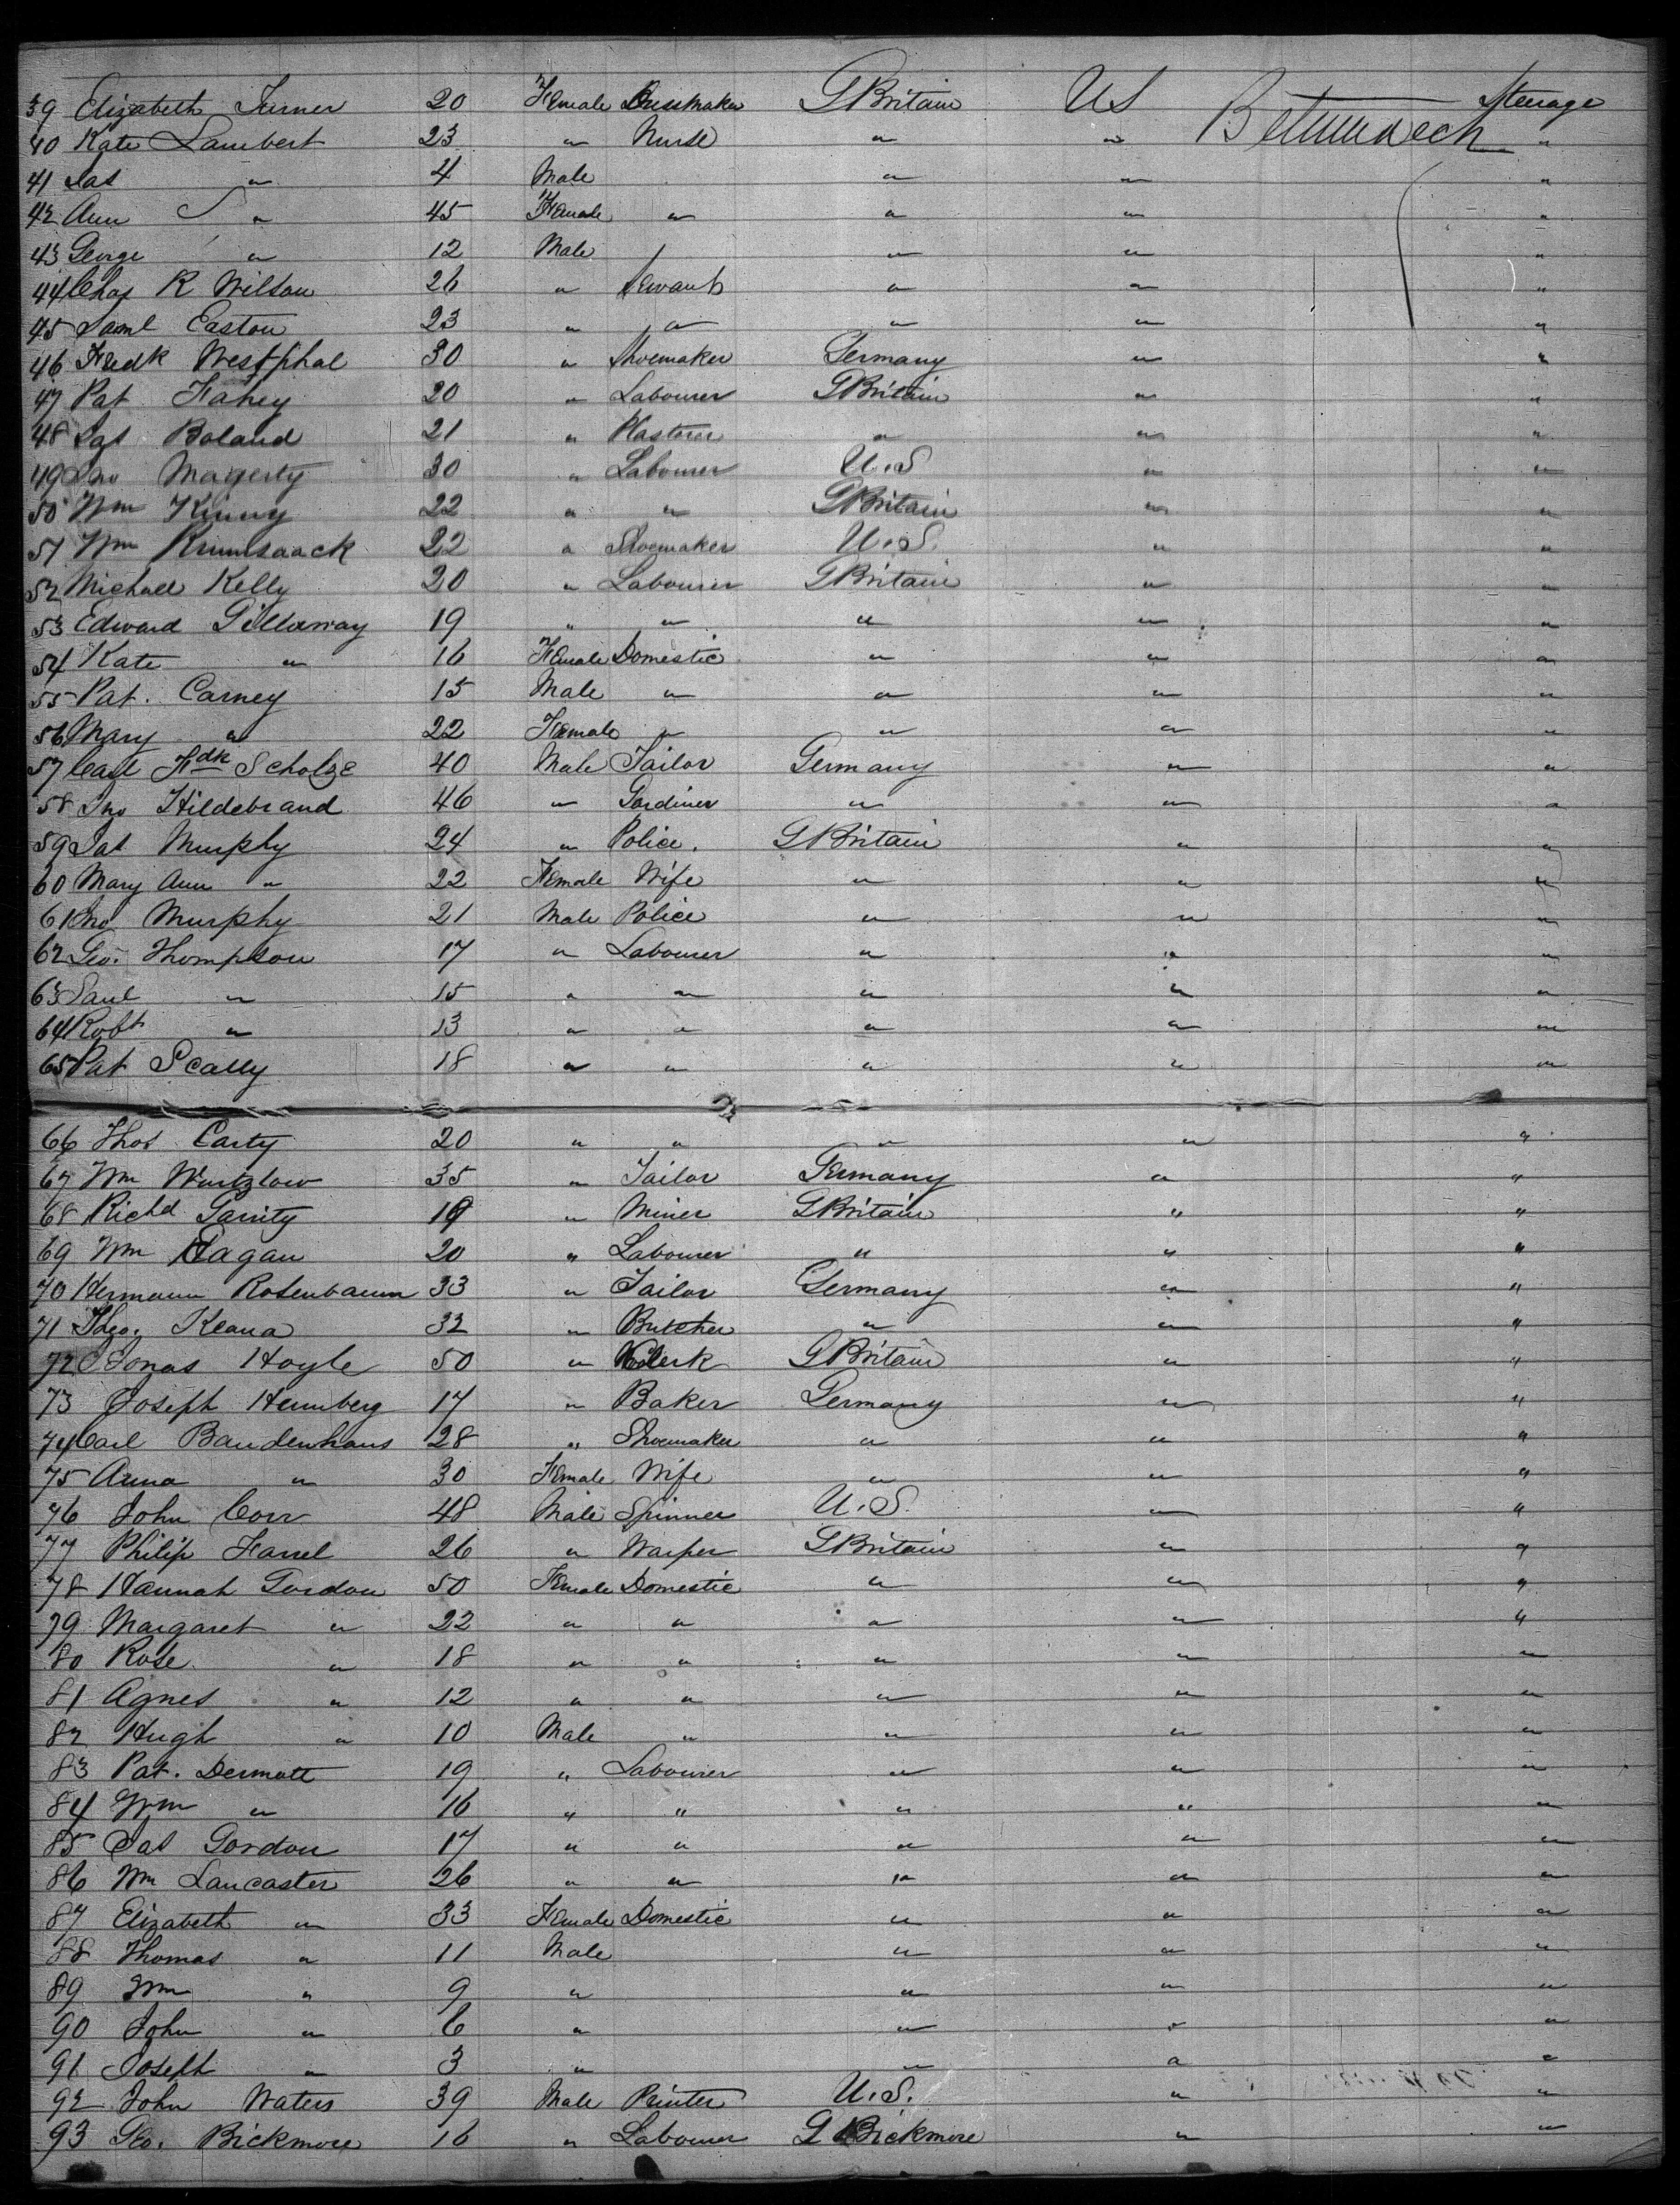 39 Elizabeth Turner 20 Female Dressmaker G Britain US Between Decks Steerage
40 Kate Lambert 23 " Nurse " " "
41 Jas " 4 Male " " "
42 Ann " 45 Female " " " "
43 George " 12 Male " " "
44 Chas R Wilson 26 " Servant " " "
45 Saml Easton 23 " " " " "
46 Fredk Westphal 30 " Shoemaker Germany " "
47 Pat Fahey 20 " Labourer G Britain " "
48 Jas Boland 21 " Plasterer " " "
49 Jno Magerty 30 " Labourer U.S " "
50 Wm Kinny 22 " " G Britain " "
51 Wm Krumsaack 22 " Shoemaker U.S. " "
52 Michael Kelly 20 " Labourer G Britain " "
53 Edward Gillaway 19 " " " " "
54 Kate " 16 Female Domestic " " "
55 Pat. Carney 15 Male " " " "
56 Mary " 22 Female " " " "
57 Carl Fdk Scholze 40 Male Tailor Germany " "
58 Jno Hildebrand 46 " Gardiner " " "
59 Jas Murphy 24 " Police. G Britain " "
60 Mary Ann " 22 Female Wife " " "
61 Jno Murphy 21 Male Police " " "
62 Geo. Thompson 17 " Labourer " " "
63 Saul " 15 " " " " "
64 Robt " 13 " " " " "
65 Pat Scally 18 " " " " "
66 Thos Carty 20 " " " " "
67 Wm Wurtzlow 35 " Tailor Germany " "
68 Richd Garrity 19 " Miner G Britain " "
69 Wm Eagan 20 " Labourer " " "
70 Hermann Rosenbaum 33 " Tailor Germany " "
71 Theo. Keana 32 " Butcher " " "
72 Jonas Hoyle 50 " Clerk G Britain " "
73 Joseph Hennberg 17 " Baker Germany " "
74 Carl Baudenhans 28 " Shoemaker " " "
75 Anna " 30 Female Wife " " "
76 John Corr 48 Male Spinner U.S. " "
77 Philip Farrel 26 " Warper G Britain " "
78 Hannah Gordon 50 Female Domestic " " "
79 Margaret " 22 " " " " "
80 Rose " 18 " " " " "
81 Agnes " 12 " " " " "
82 Hugh " 10 Male " " " "
83 Pat. Dermott 19 " Labourer " " "
84 Wm " 16 " " " " "
85 Jas Gordon 17 " " " " "
86 Wm Lancaster 26 " " " " "
87 Elizabeth " 33 Female Domestic " " "
88 Thomas " 11 Male " " "
89 Wm " 9 " " " "
90 John " 6 " " " "
91 Joseph " 3 " " " "
92 John Waters 39 Male Printer U.S. " "
93 Geo. Bickmore 16 " Labourer G Bickmore " "